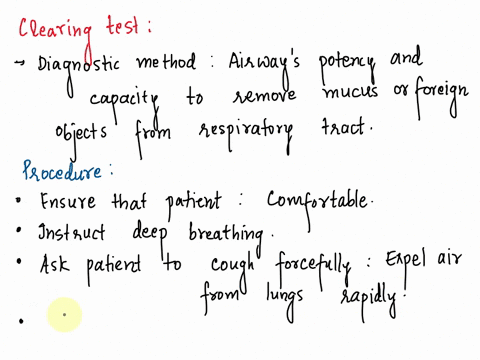 Clearing test :
→ Diagnostic method : Airway's potency and
capacity to remove mucus or foreign
objects from respiratory tract.
Procedure :
• Ensure that patient : Comfortable.
• Instruct deep breathing.
• Ask patient to cough forcefully : Expel air
from lungs rapidly.
•